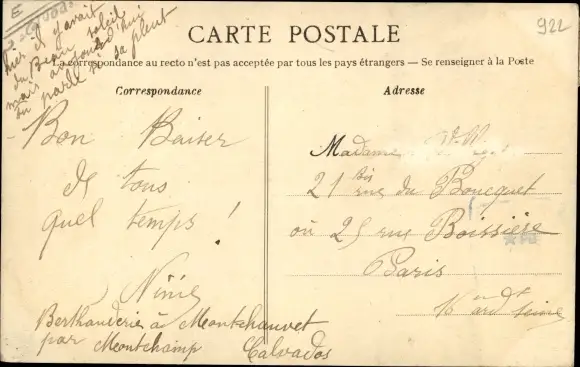 E
hier il y avait
du Beau soleil
mais aujourd'hui
on parle si sa pleut
922
CARTE POSTALE
La correspondance au recto n'est pas acceptée par tous les pays étrangers — Se renseigner à la Poste
Correspondance
Bon Baiser
de tous
quel temps !
Ninie
Berthauderie à Montchauvet
par Montchamp Calvados
Adresse
Madame
21 bis rue du Boucquet
où 25 rue Boissière
Paris
16 ard Seine